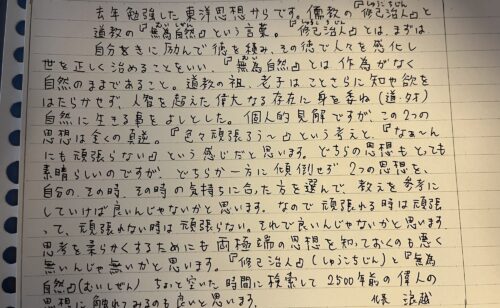 去年勉強した東洋思想からです。儒教の『修己治人』と
道教の『無為自然』という言葉。『修己治人』とは、まずは
自分磨きに励んで徳を積み、その徳で人々を感化し
世を正しく治めることをいい、『無為自然』とは作為がなく
自然のままであること。道教の祖、老子はことさらに知や欲を
はたらかせず、人智を超えた偉大なる存在に身を委ね(道・タオ)
自然に生きる事をよしとした。個人的見解ですが、この2つの
思想は全くの真逆。『色々頑張ろう〜』という考えと、『なぁ〜ん
にも頑張らない』という感じだと思います。どちらの思想もとても
素晴らしいのですが、どちらか一方に傾倒せず2つの思想を、
自分の、その時、その時の気持ちに合った方を選んで、教えを参考に
していけば良いんじゃないかと思います。なので頑張れる時は頑張
って、頑張れない時は頑張らない。それで良いんじゃないかと思います
思考を柔らかくするためにも両極端の思想を知っておくのも悪く
無いんじゃ無いかと思います。『修己治人』(しゅうこちじん)と『無為
自然』(むいしぜん) ちょと空いた時間に検索して2500年前の偉人の
思想に触れてみるのも良いと思います。